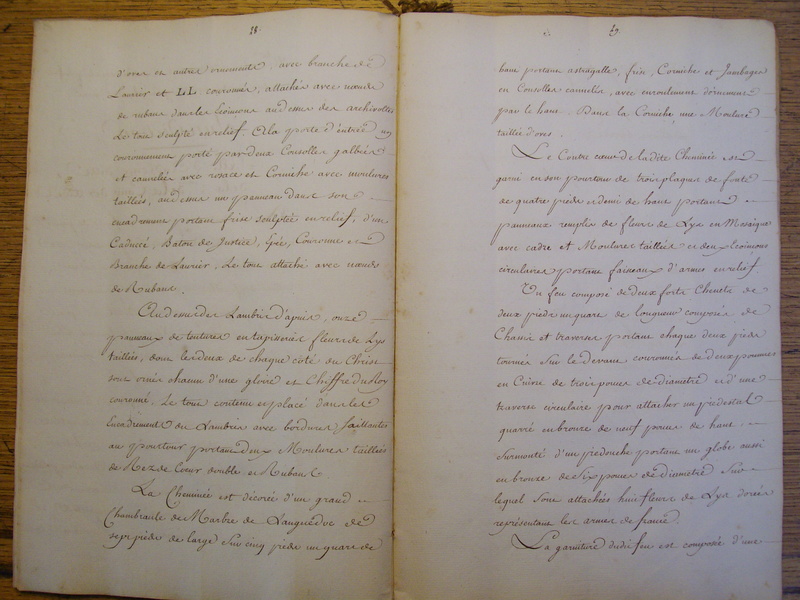 58.
d'oves et autres ornements, avec branche de
Laurier et LL couronnés, attachés avec nœuds
de rubans dans les Ecoinsons audessus des archivoltes
Le tout sculpté en relief. A la porte d'entrée un
couronnement porté par deux Consolles galbées
et cannelées avec rosace et Corniche avec moulures
taillées, audessus un panneau dans son
encadrement portant frise sculptée en relief, d'un
Caducé, Baton de Justice, Epée, Couronne et
Branche de Laurier, Le tout attaché avec nœuds
de Rubans.
Audessus des Lambris d'apuis, onze
panneaux de tentures en tapisseries fleurs de Lys
taillés, dont les deux de chaque côté du Christ
sont ornés chacun d'une gloire et Chiffre du Roy
couronné. Le tout contenu et placé dans les
Encadrements du Lambris avec bordures saillantes
au pourtour portant deux Moulures taillées
de Rez de Cœur double et Rubans.
La Cheminée est décorée d'un grand
Chambranle de Marbre de Languedoc de
sept pieds de large sur cinq pieds un quart de
59.
haut portant astragalle, frise, Corniche et Jambages
en Consolles cannelées, avec enroulement d'ornement
par le haut. Dans la Corniche, une Moulure
taillée d'oves.
Le Contre cœur de la dite Cheminée est
garni en son pourtour de trois plaques de fonte
de quatre pieds et demi de haut portant
panneaux remplis de fleurs de Lys en Mosaique
avec cadre et Moulures taillées et deux Ecoinsons
circulaires portant faisceaux d'armes en relief.
Un feu composé de deux forts Chenets de
deux pieds un quart de longueur composés de
Chassis et traverses portant chaque deux pieds
tournés sur le devant couronnés de deux pommes
en Cuivre de trois pouces de diametre et d'une
traverse circulaire pour attacher un piédestal
quarré en bronze de neuf pouces de haut
surmonté d'un piedouche portant un globe aussi
en bronze de six pouces de diametre sur
lequel sont attachés huit fleurs de Lys dorées
représentant les armes de france.
La garniture dudit feu est composée d'une